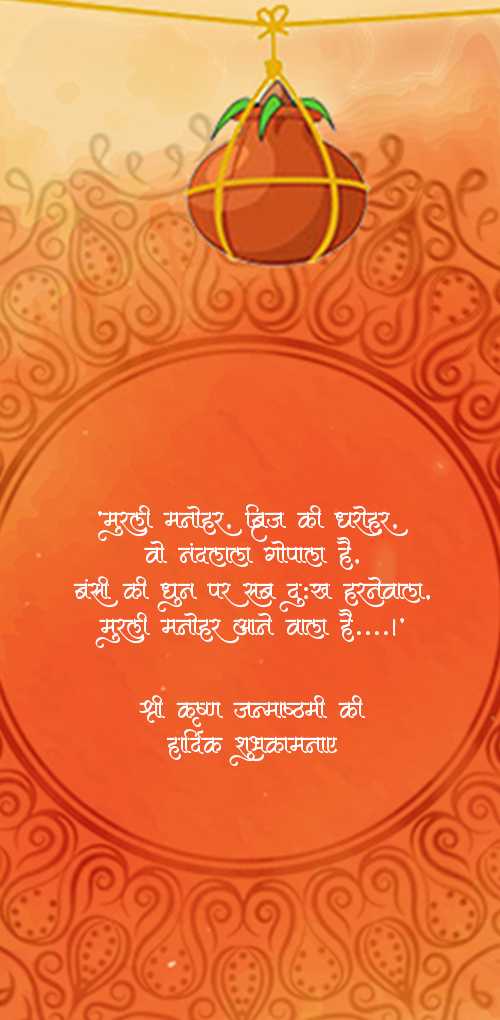 'मुरली मनोहर, ब्रिज की धरोहर,
वो नंदलाला गोपाला है,
बंसी की धुन पर सब दु:ख हरनेवाला,
मुरली मनोहर आने वाला है....।'
श्री कृष्ण जन्माष्ठमी की
हार्दिक शुभकामनाए